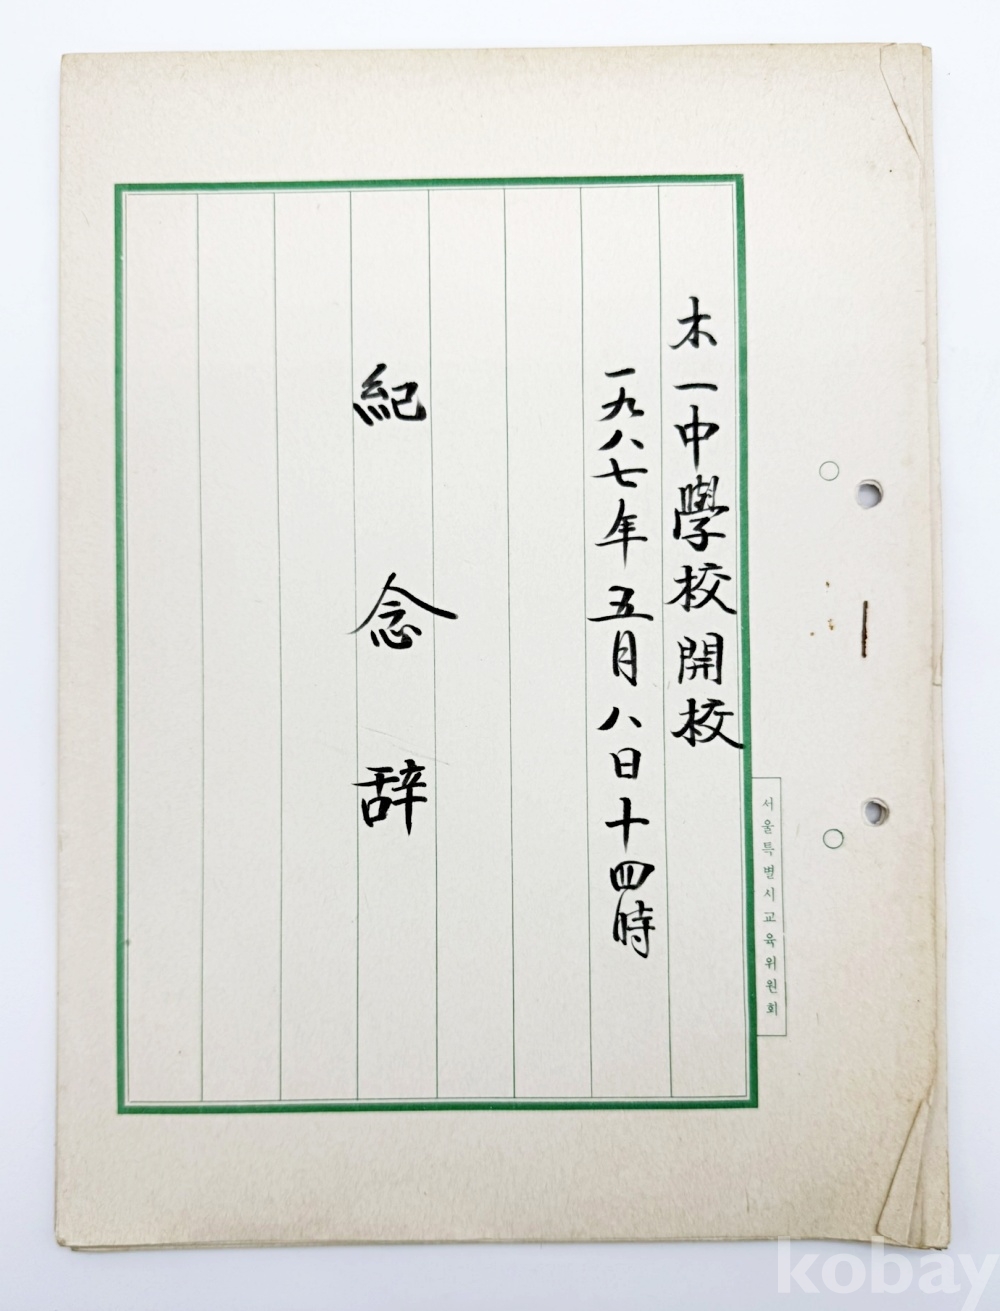 木一中學校開校
一九八七年五月八日十四時
紀念辞
서울특별시교육위원회
kobay